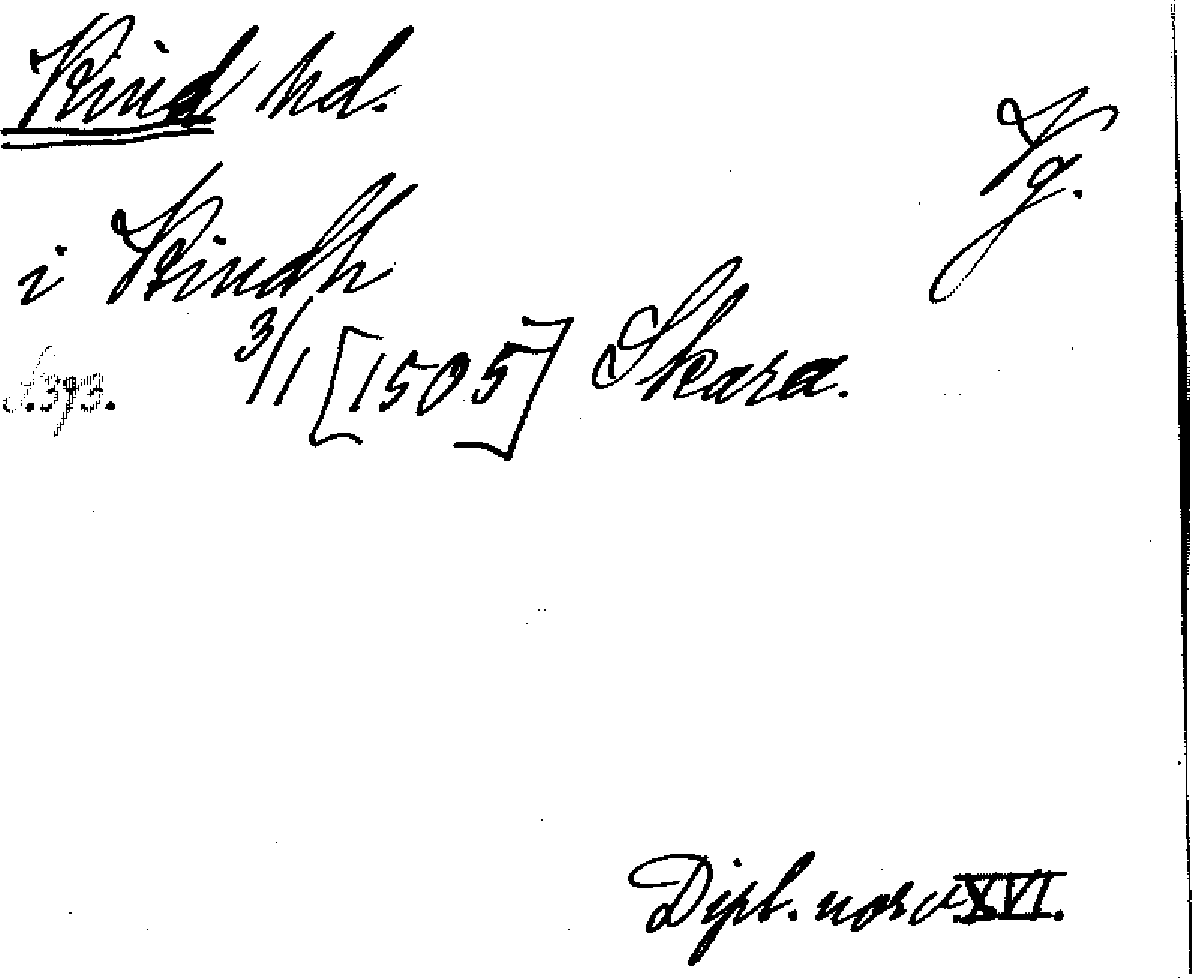 Kind hd.
Vg.
i Kindh
s.393. 3/1 [1505] Skara.
Dipl. norv. XVI.